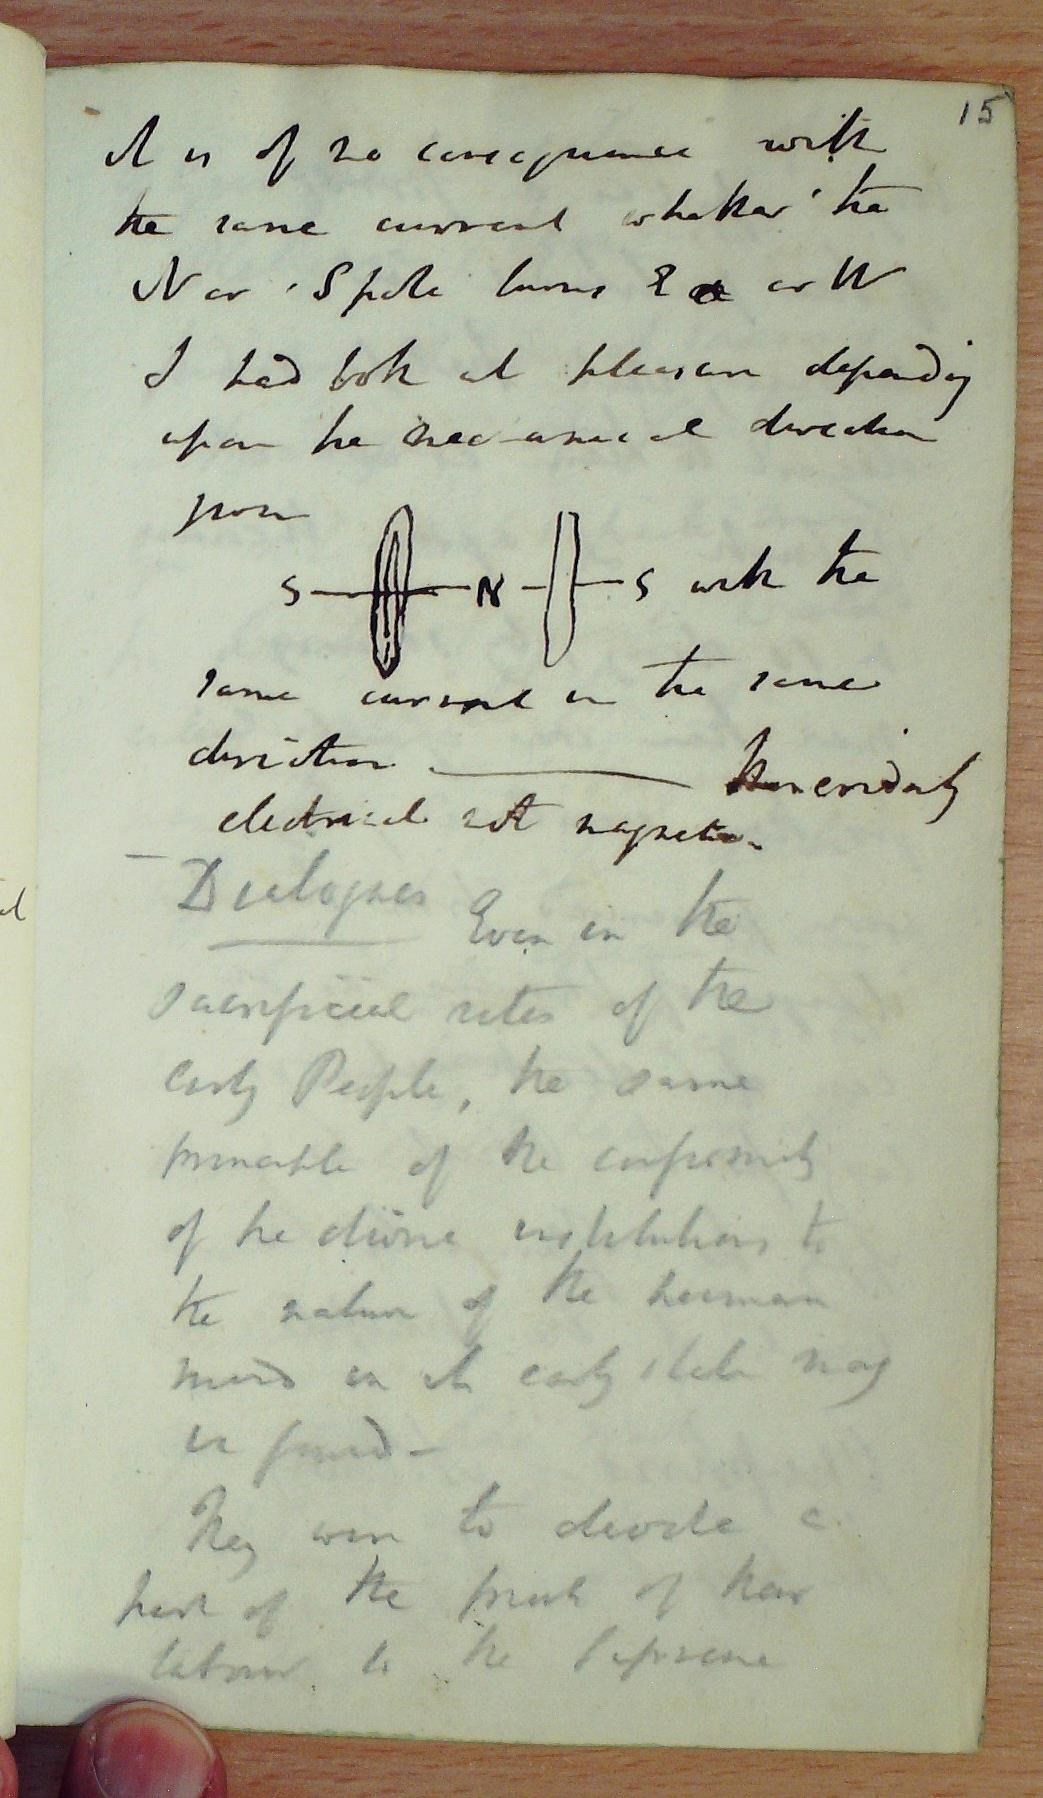 15
it is of no consequence with
the same current whether the
N or S pole turns E or W
I had both at pleasure depending
upon the mechanical direction
given
S N S with the
same current in the same
direction evidently
electrical not magnetic.
Dialogues Even in the
sacrificial rites of the
early People, the same
principle of the conformity
of the divine institutions to
the nature of the human
mind in its early state may
be found -
They were to devote a
part of the fruits of their
labour to the Supreme